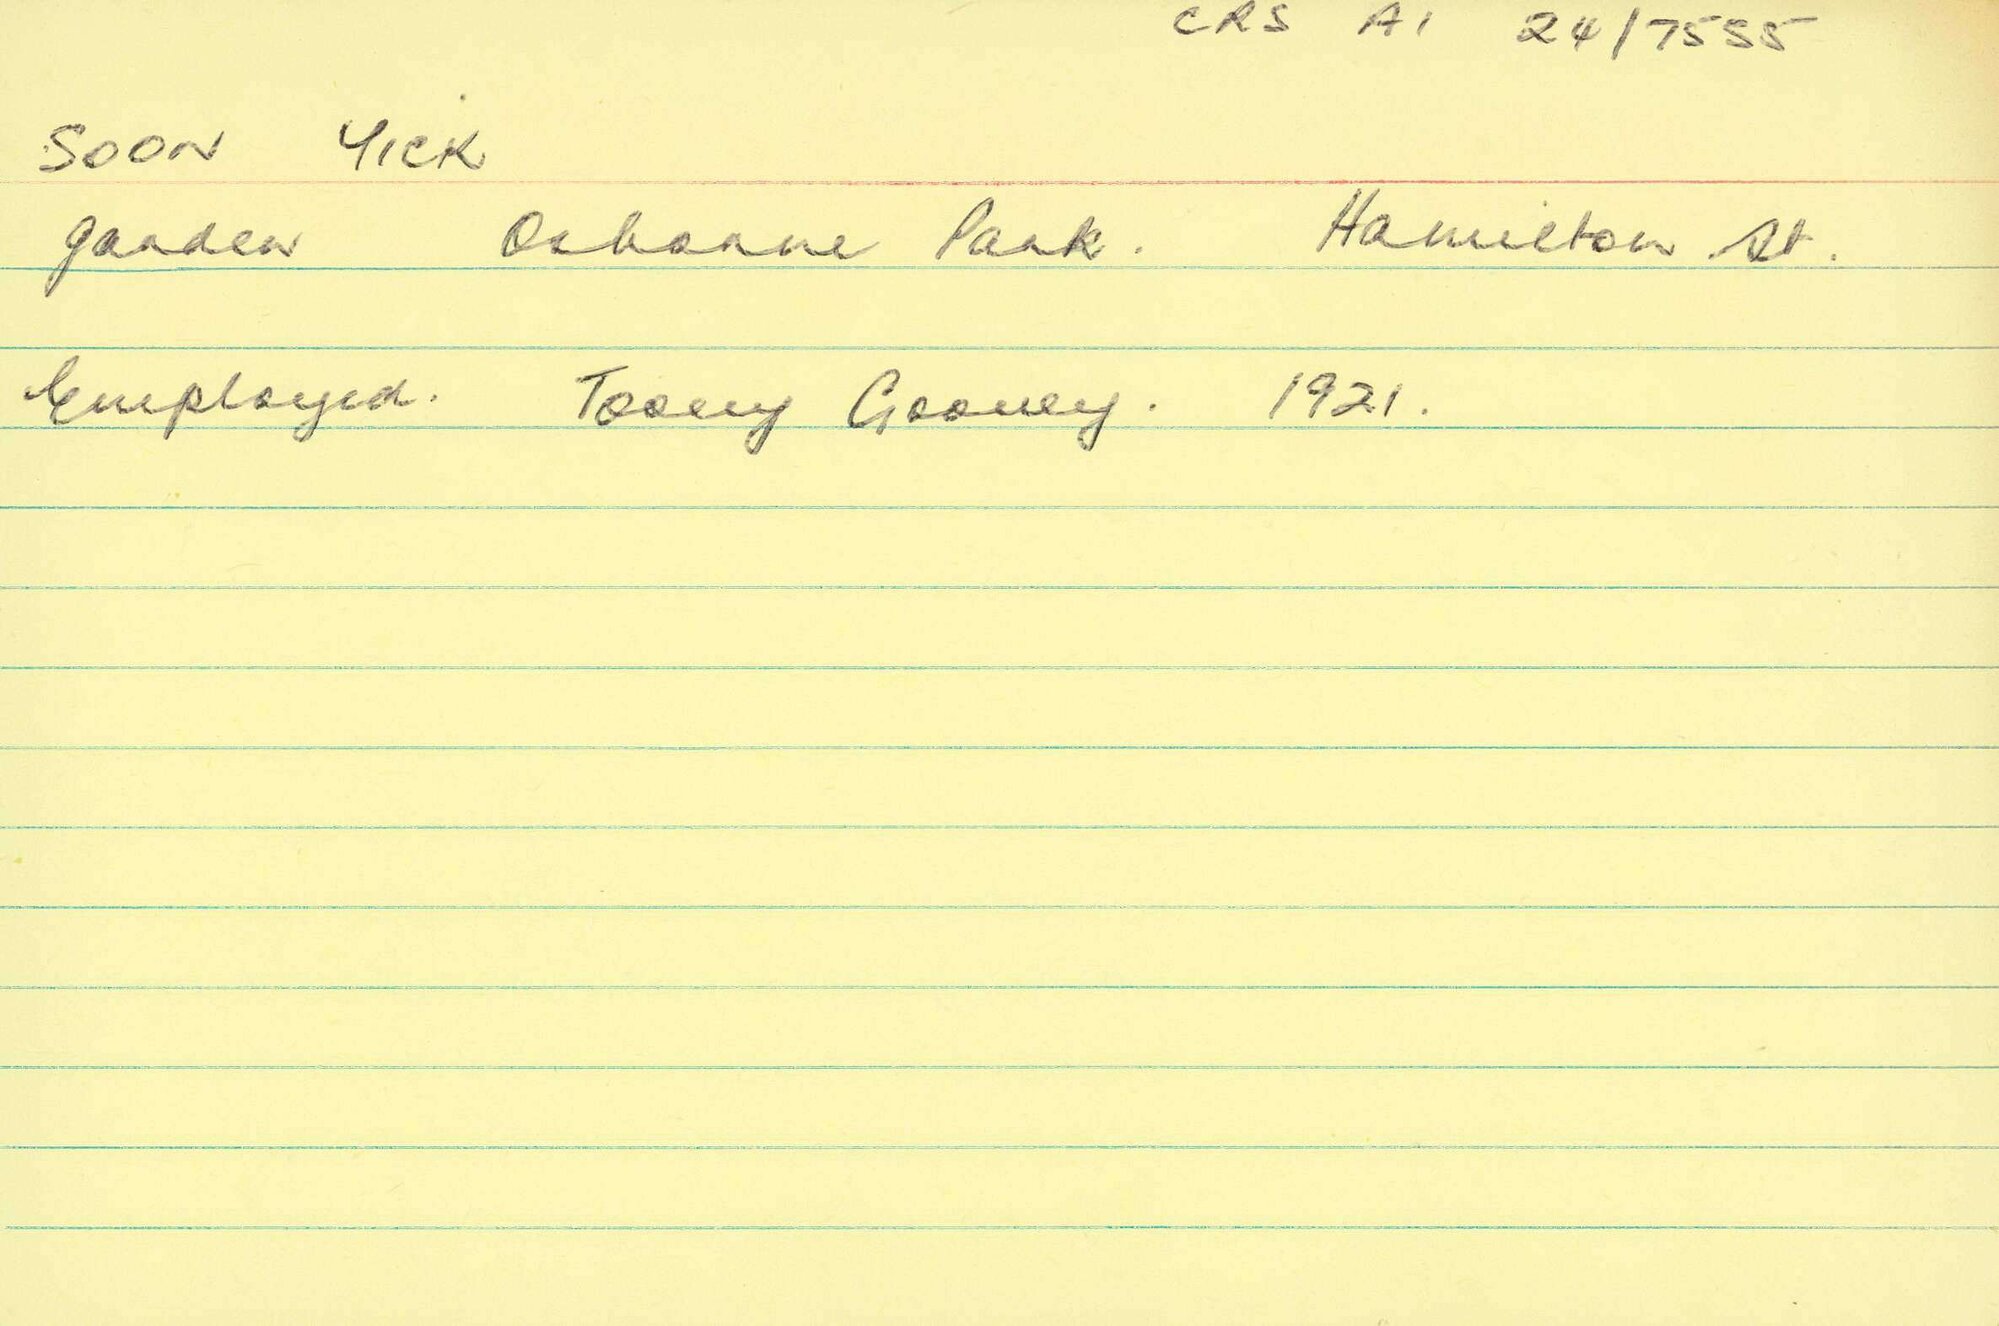 CRS A1 24/7555
SOON YICK
garden Osborne Park. Hamilton St.
Employed. Tooey Gooney. 1921.